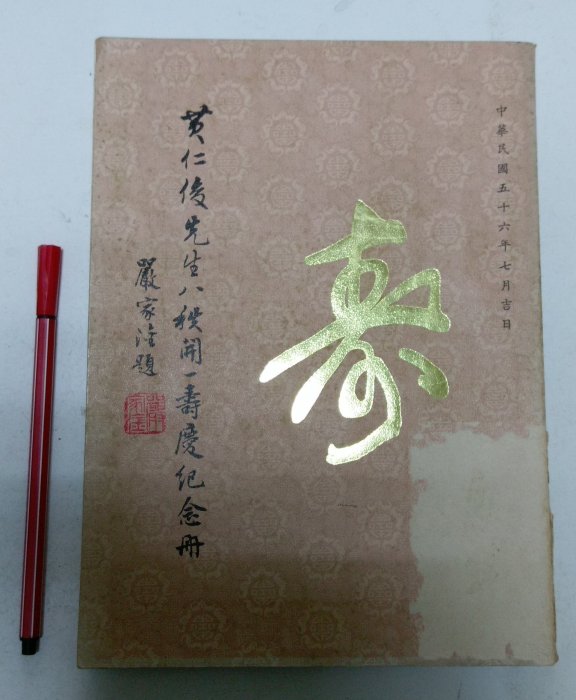 中華民國五十六年七月吉日
壽
黃仁俊先生八秩開一壽慶紀念冊
嚴家淦題